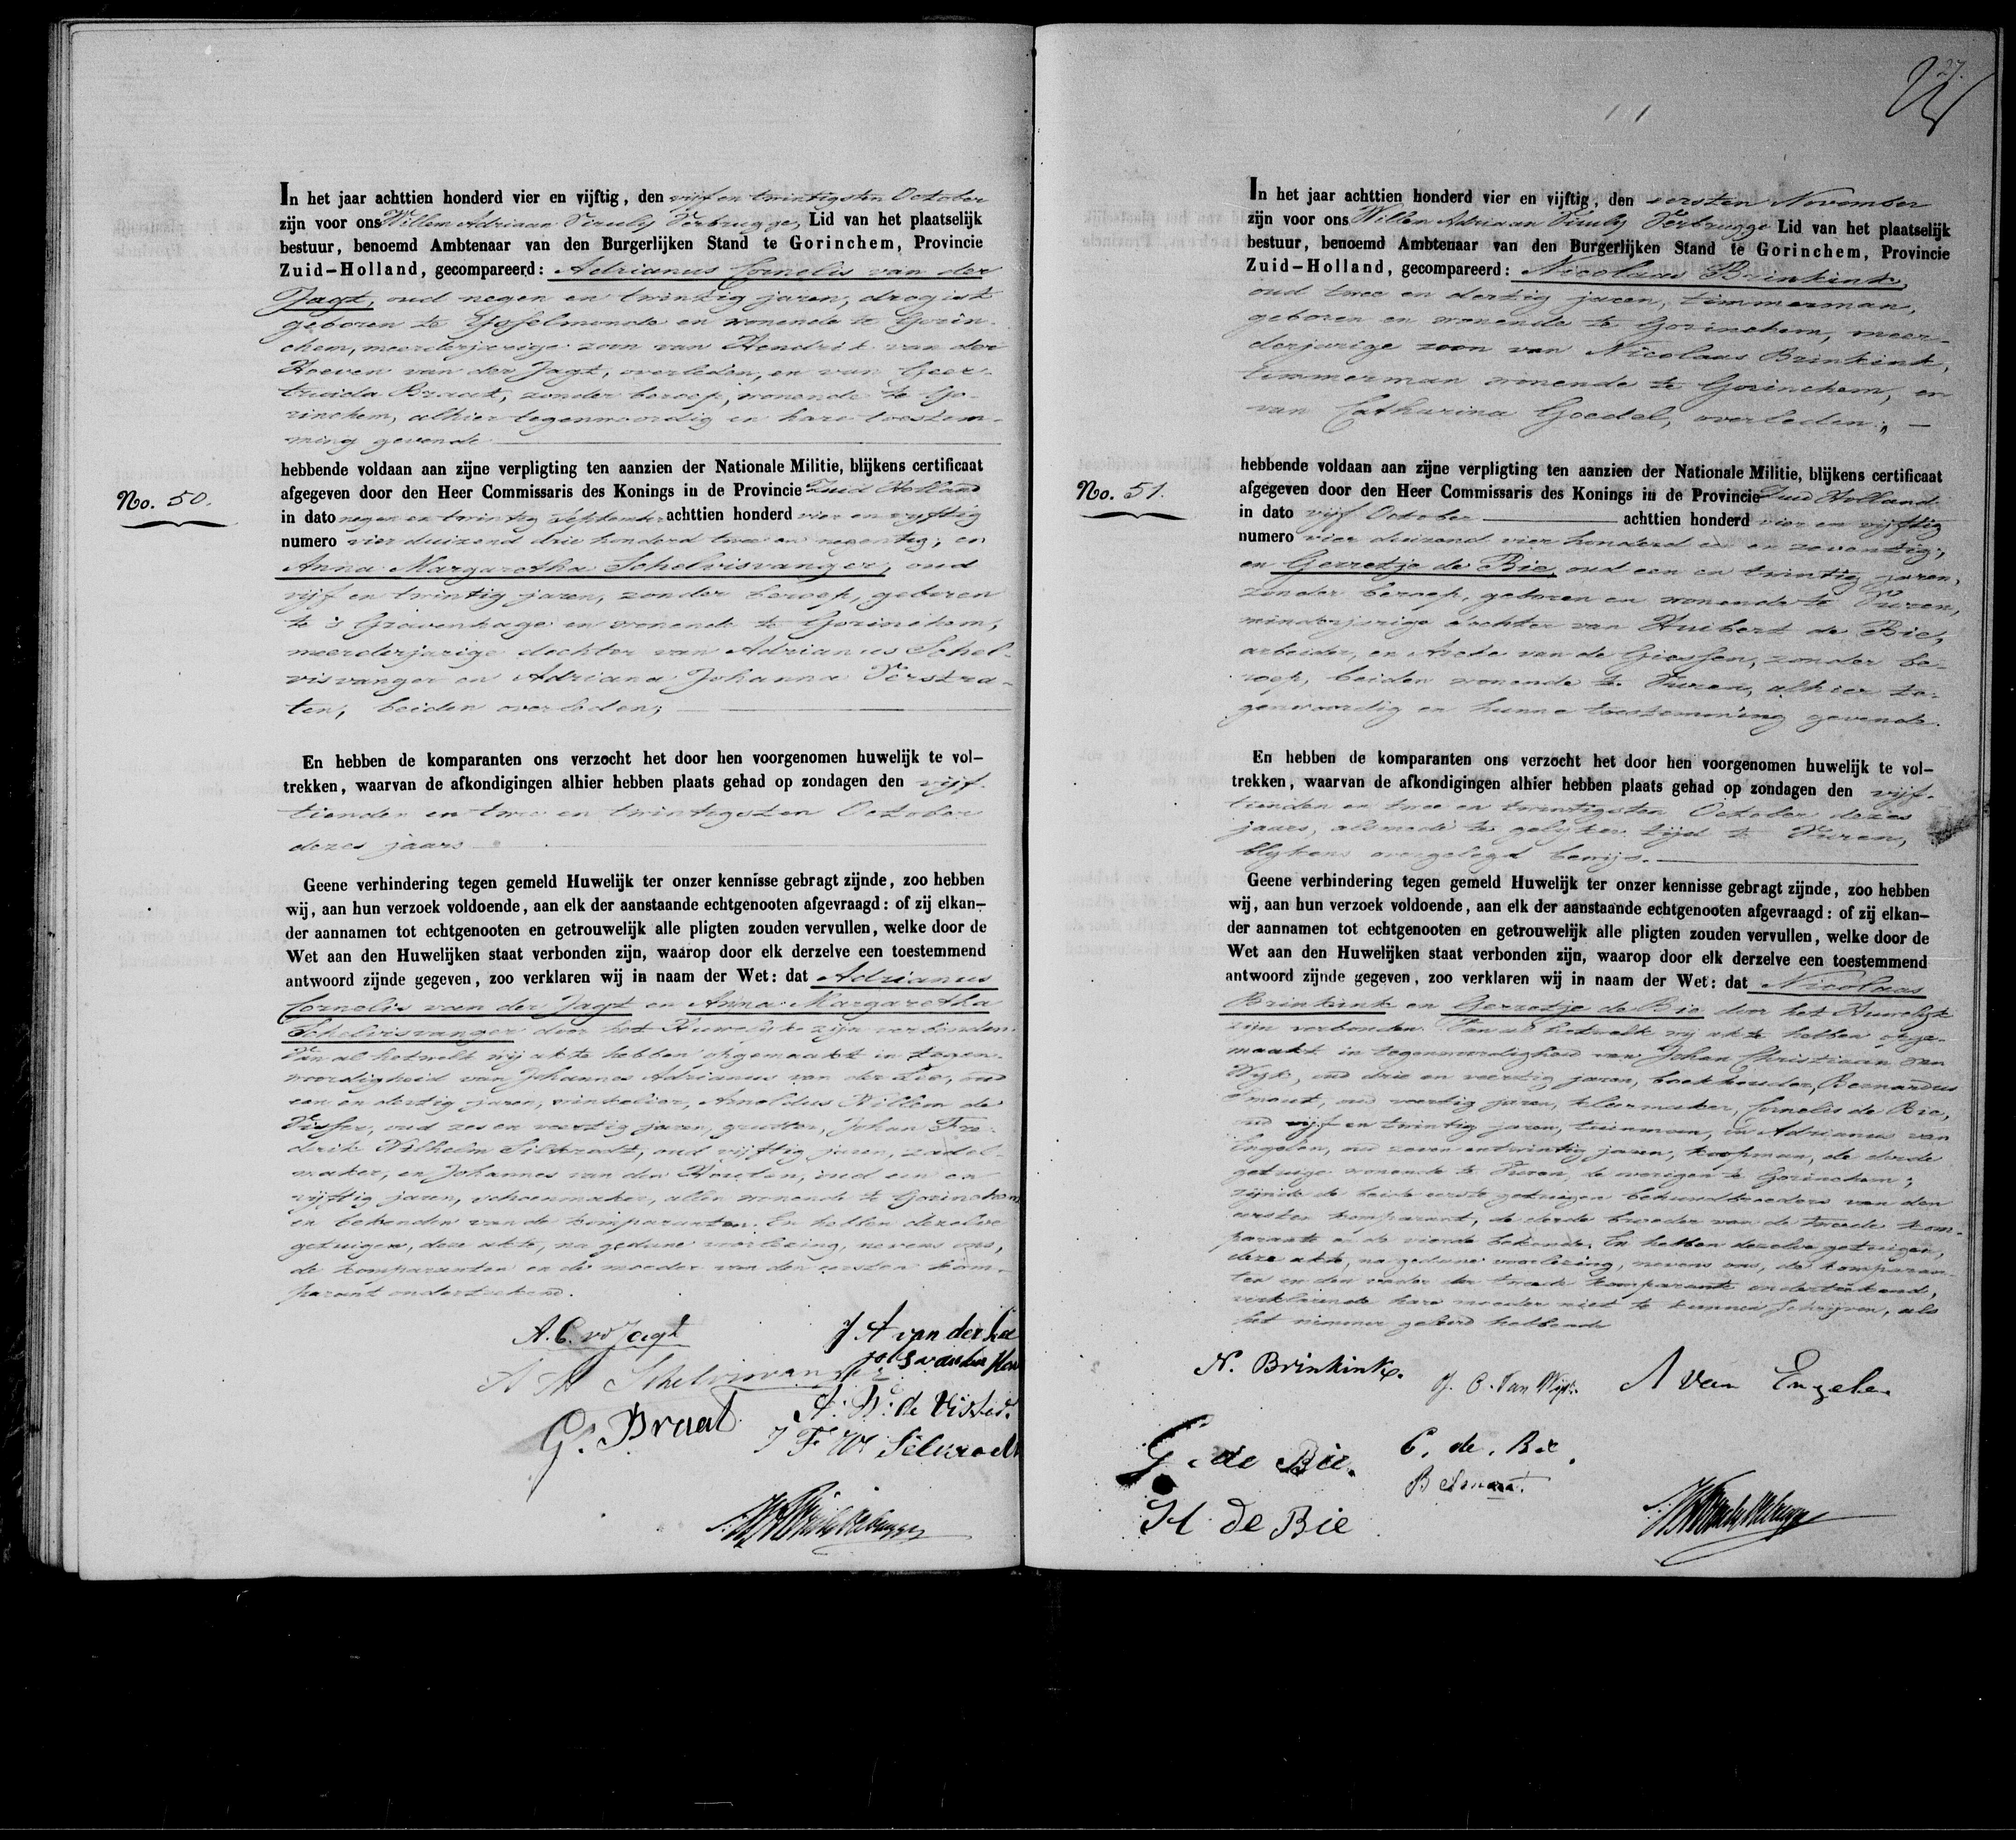 No. 50.
In het jaar achttien honderd vier en vijftig, den vijf en twintigsten October
zijn voor ons Willem Adriaan Viruly Verbrugge, Lid van het plaatselijk
bestuur, benoemd Ambtenaar van den Burgerlijken Stand te Gorinchem, Provincie
Zuid-Holland, gecompareerd: Adrianus Cornelis van der
Jagt, oud negen en twintig jaren, drogist
geboren te IJsselmonde en wonende te Gorin-
chem, meerderjarige zoon van Hendrik van der
Hoeven van der Jagt, overleden, en van Geer-
truida Braat, zonder beroep, wonende te Go-
rinchem, alhier tegenwoordig en hare toestem-
ming gevende
hebbende voldaan aan zijne verpligting ten aanzien der Nationale Militie, blijkens certificaat
afgegeven door den Heer Commissaris des Konings in de Provincie Zuid Holland
in dato negen en twintig September achttien honderd vier en vijftig
numero vier duizend drie honderd twee en negentig, en
Anna Margaretha Schelvisvanger, oud
vijf en twintig jaren, zonder beroep, geboren
te 's Gravenhage en wonende te Gorinchem,
meerderjarige dochter van Adrianus Schel-
visvanger en Adriana Johanna Verstra-
ten, beiden overleden;
En hebben de komparanten ons verzocht het door hen voorgenomen huwelijk te vol-
trekken, waarvan de afkondigingen alhier hebben plaats gehad op zondagen den vijf-
tienden en twee en twintigsten October
dezes jaars
Geene verhindering tegen gemeld Huwelijk ter onzer kennisse gebragt zijnde, zoo hebben
wij, aan hun verzoek voldoende, aan elk der aanstaande echtgenooten afgevraagd: of zij elkan-
der aannamen tot echtgenooten en getrouwelijk alle pligten zouden vervullen, welke door de
Wet aan den Huwelijken staat verbonden zijn, waarop door elk derzelve een toestemmend
antwoord zijnde gegeven, zoo verklaren wij in naam der Wet: dat Adrianus
Cornelis van der Jagt en Anna Margaretha
Schelvisvanger door het Huwelijk zijn verbonden.
Van al hetwelk wij akte hebben opgemaakt in tegen-
woordigheid van Johannes Adrianus van der Lee, oud
een en dertig jaren, winkelier, Arnoldus Willem de
Visser, oud zes en veertig jaren, grutter, Johan Fre-
derik Wilhelm Silbrodt, oud vijftig jaren, zadel-
maker, en Johannes van den Houten, oud een en
vijftig jaren, schoenmaker, allen wonende te Gorinchem
en bekenden van de komparanten. En hebben dezelve
getuigen, deze akte, na gedane voorlezing, nevens ons,
de komparanten en de moeder van den eersten kom-
parant onderteekend.
A. C. vd Jagt
J A van der Lee
A M Schelvisvanger
G. Braat
A. W. de Visser.
J F W
27.
No. 51.
In het jaar achttien honderd vier en vijftig, den eersten November
zijn voor ons Willem Adriaan Viruly Verbrugge Lid van het plaatselijk
bestuur, benoemd Ambtenaar van den Burgerlijken Stand te Gorinchem, Provincie
Zuid-Holland, gecompareerd: Nicolaas Brinkink,
oud twee en dertig jaren, timmerman,
geboren en wonende te Gorinchem, meer-
derjarige zoon van Nicolaas Brinkink,
timmerman wonende te Gorinchem, en
van Catharina Goedel, overleden;
hebbende voldaan aan zijne verpligting ten aanzien der Nationale Militie, blijkens certificaat
afgegeven door den Heer Commissaris des Konings in de Provincie Zuid Holland
in dato vijf October achttien honderd vier en vijftig
numero vier duizend vier honderd een en zeventig,
en Gerretje de Bie, oud een en twintig jaren,
zonder beroep, geboren en wonende te Vuren,
minderjarige dochter van Huibert de Bie,
arbeider, en van de Giessen, zonder be-
roep, beiden wonende te Vuren, alhier te-
genwoordig en hunne toestemming gevende.
En hebben de komparanten ons verzocht het door hen voorgenomen huwelijk te vol-
trekken, waarvan de afkondigingen alhier hebben plaats gehad op zondagen den vijf-
tienden en twee en twintigsten October dezes
jaars, alsmede te gelijker tijd te Vuren,
blijkens overgelegd bewijs.
Geene verhindering tegen gemeld Huwelijk ter onzer kennisse gebragt zijnde, zoo hebben
wij, aan hun verzoek voldoende, aan elk der aanstaande echtgenooten afgevraagd: of zij elkan-
der aannamen tot echtgenooten en getrouwelijk alle pligten zouden vervullen, welke door de
Wet aan den Huwelijken staat verbonden zijn, waarop door elk derzelve een toestemmend
antwoord zijnde gegeven, zoo verklaren wij in naam der Wet: dat Nicolaas
Brinkink en Gerretje de Bie door het Huwelijk
zijn verbonden. Van al hetwelk wij akte hebben opge-
maakt in tegenwoordigheid van Johan Christiaan van
Wijk, oud drie en veertig jaren, boekhouder, Bernardus
Smout, oud veertig jaren, kleermaker, Cornelis de Bie,
oud vijf en twintig jaren, tuinman, en Adrianus van
Engelen, oud zeven en twintig jaren, koopman, de derde
getuige wonende te Vuren, de overigen te Gorinchem;
zijnde de beide eerste getuigen behuwdbroeders van den
eersten komparant, de derde broeder van de tweede kom-
parante en de vierde bekende. En hebben dezelve getuigen,
deze akte, na gedane voorlezing, nevens ons, de komparan-
ten en den vader der tweede komparante onderteekend,
verklarende hare moeder niet te kunnen schrijven, als
het nimmer geleerd hebbende
N. Brinkink.
J. C. van Wijk.
A van Engelen
G. de Bie.
C. de Bie.
B Smout.
H. de Bie